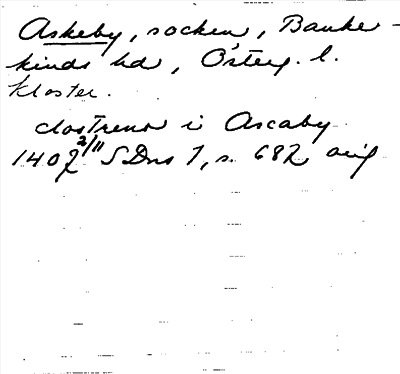 Askeby, socken, Banke-
kinds hd, Österg. l.
Kloster.
closTreno i Ascaby
1402 2/11 SDns 1, s. 682 orig